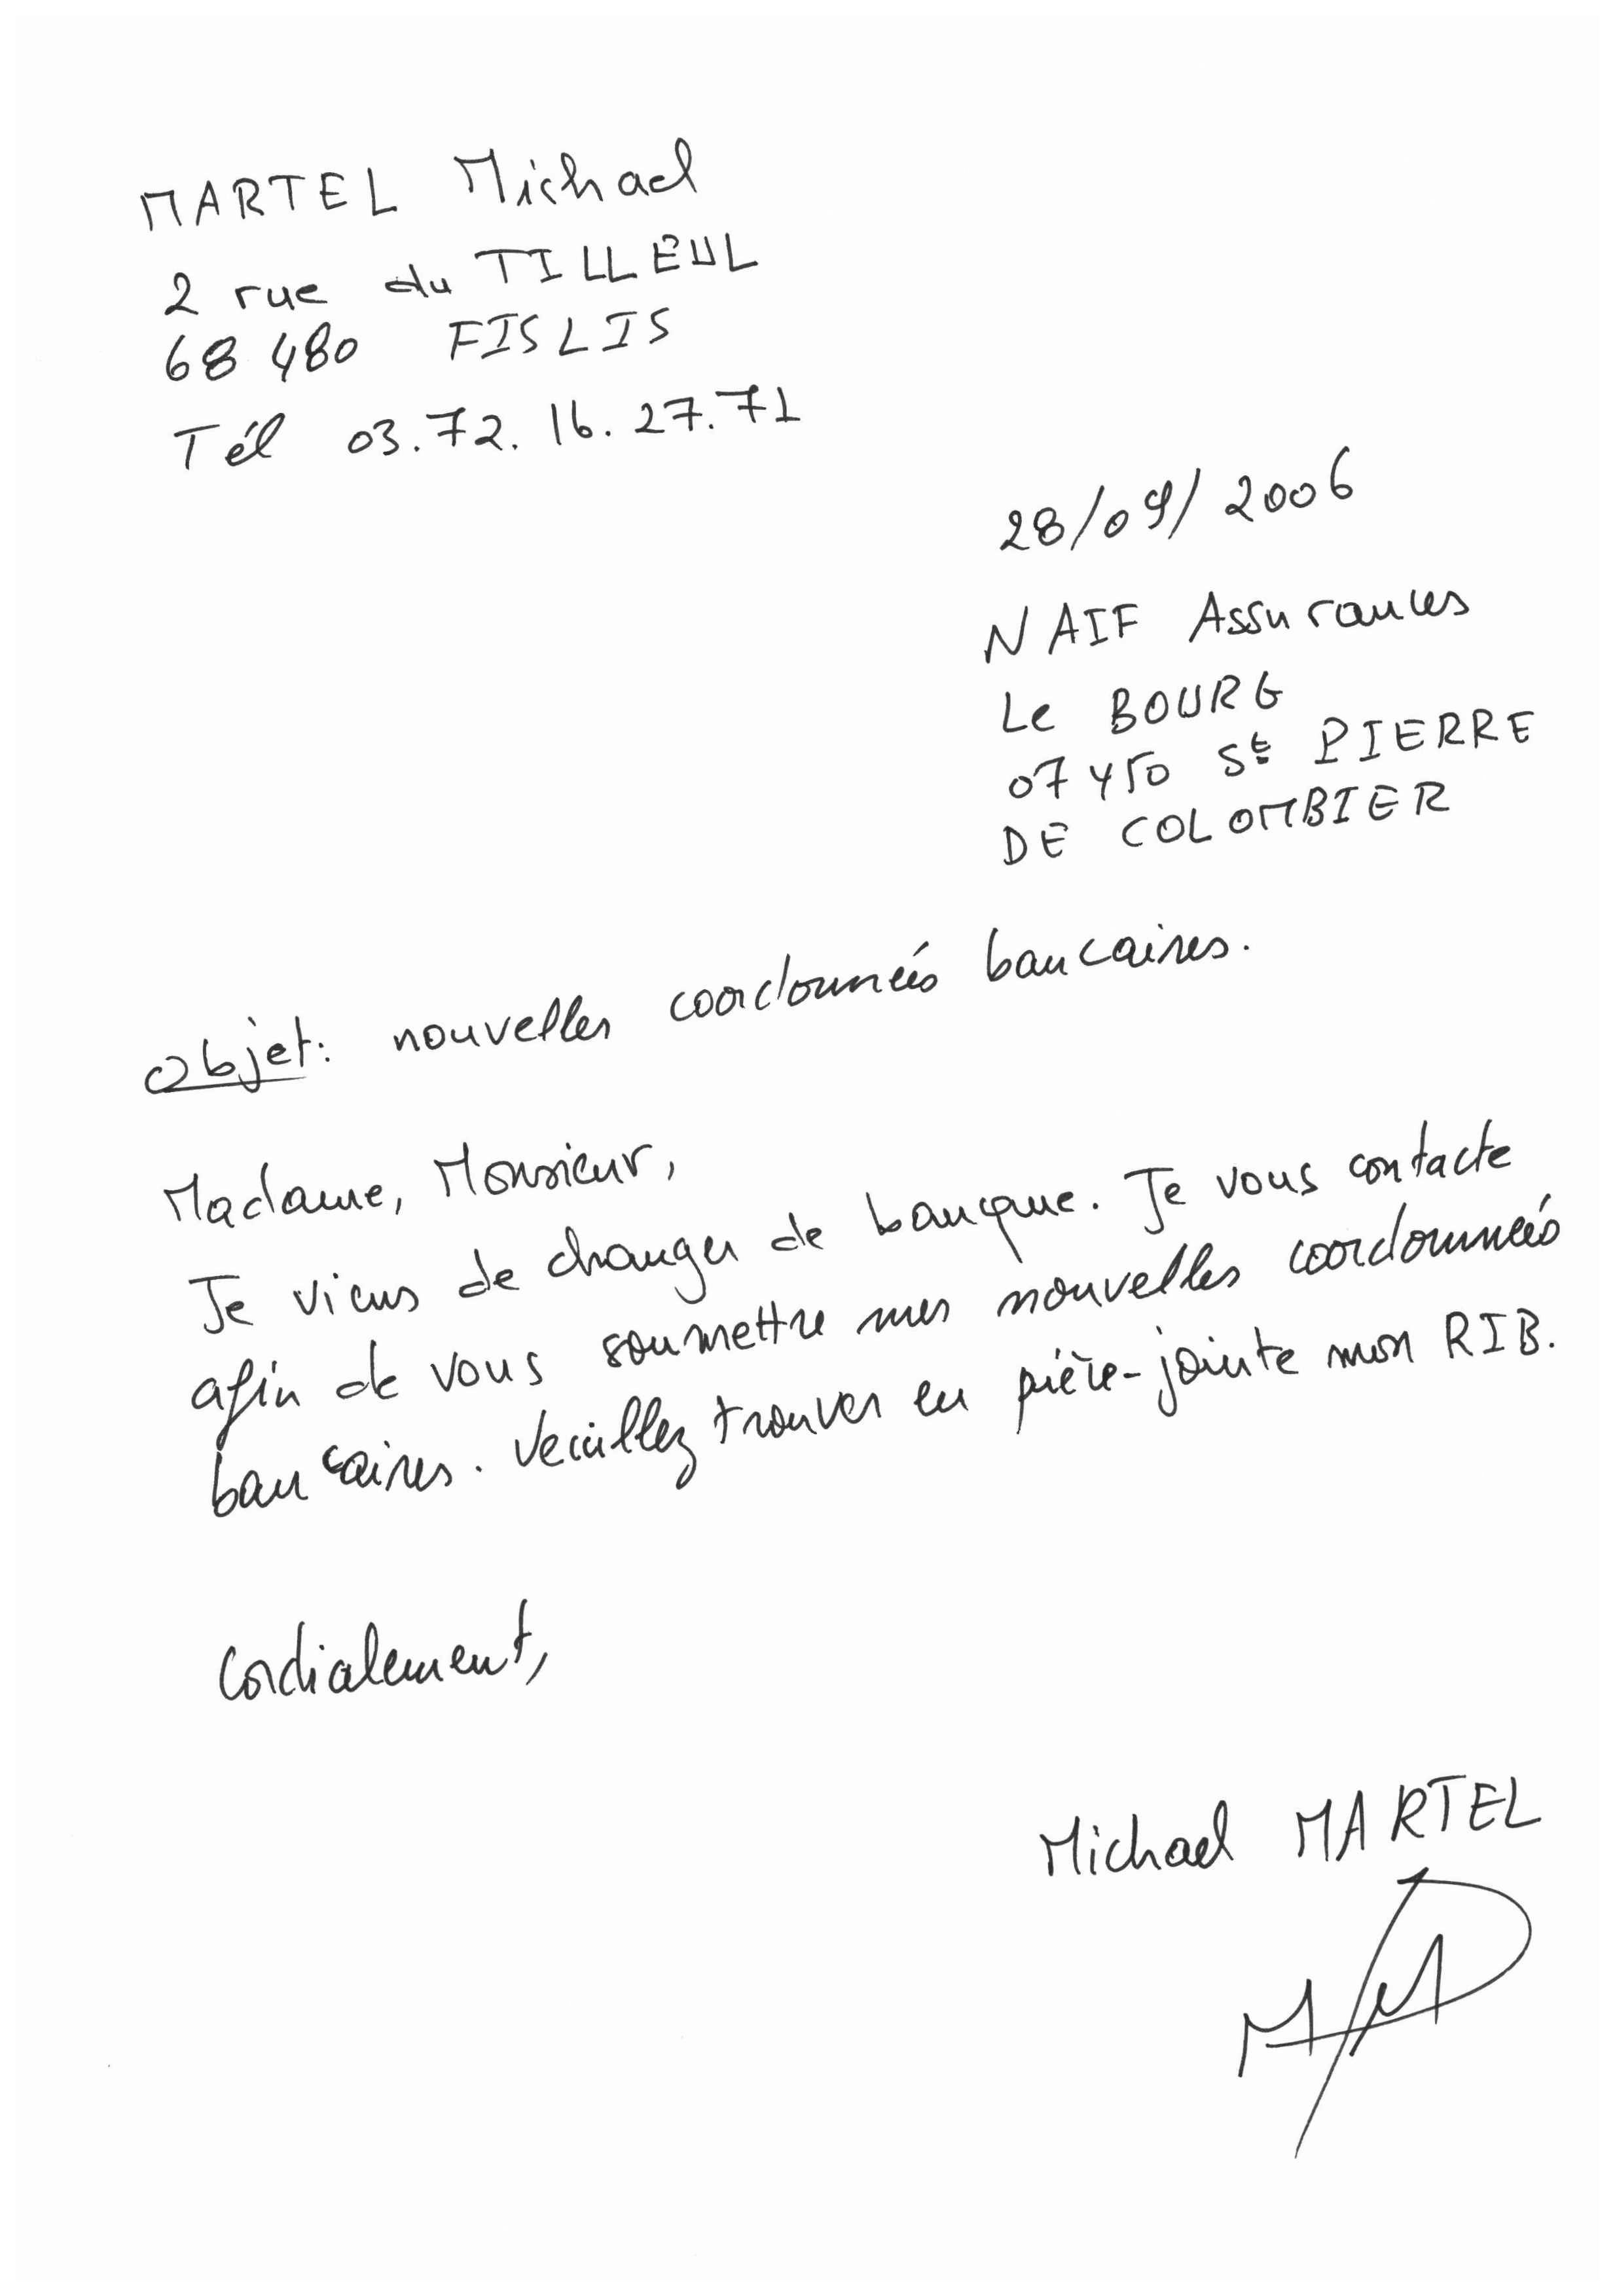 MARTEL Michael
2 rue du TILLEUL
68 480 FISLIS
Tél 03.72.16.27.71
28/09/2006
NAIF Assurances
Le BOURG
07450 St PIERRE
DE COLOMBIER
Objet: nouvelles coordonnées bancaires.
Madame, Monsieur,
Je viens de changer de banque. Je vous contacte
afin de vous soumettre mes nouvelles coordonnées
bancaires. Veuillez trouver en pièce-jointe mon RIB.
Cordialement,
Michael MARTEL